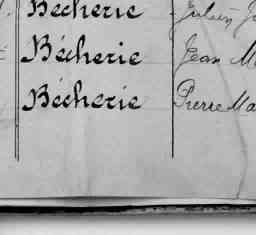 Bécherie Julien J
Bécherie Jean M
Bécherie Pierre Ma